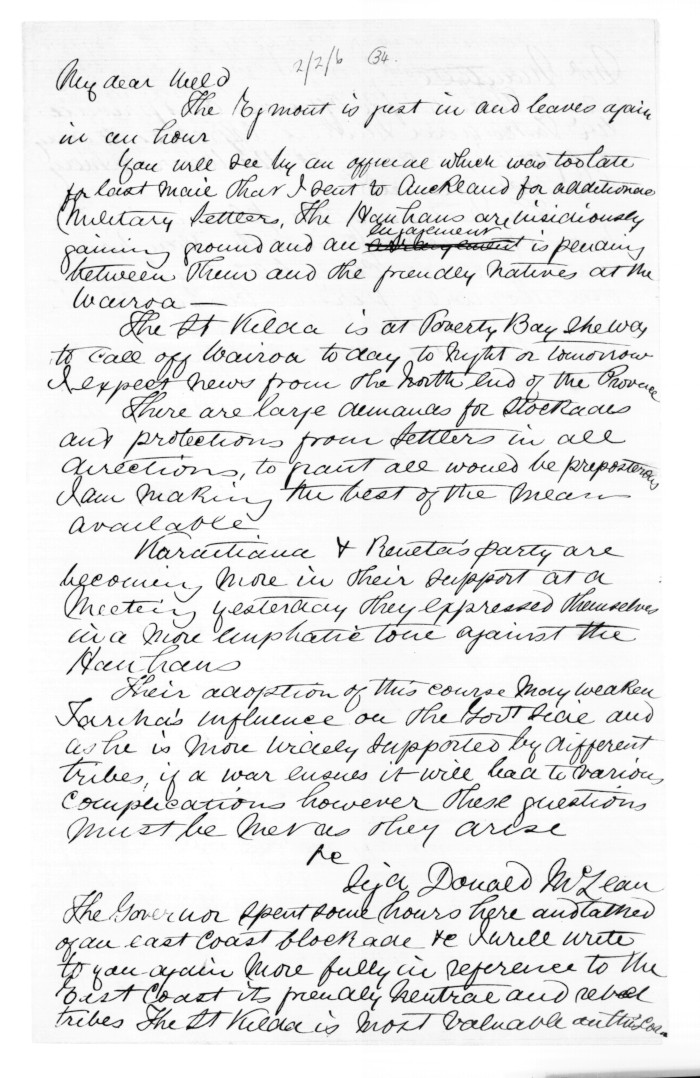 2/2/6 34.
My dear Weld
The Egmont is just in and leaves again
in an hour
You will see by an official which was too late
for last mail that I sent to Auckland for additional
Military Settlers, The Hauhaus are insidiously
engagement
gaining ground and an arrangement is pending
between them and the friendly natives at the
Wairoa —
The St Kilda is at Poverty Bay She was
to call off Wairoa today to night or tomorrow
I expect news from the North end of the Province
There are large demands for Stockades
and protections from Settlers in all
directions, to grant all would be preposterous
I am making the best of the means
available
Karaitiana & Reneta's party are
becoming more in their support at a
Meeting yesterday they expressed themselves
in a more emphatic tone against the
Hauhaus
Their adoption of this course may weaken
Tariha's influence on the Govt side and
as he is more widely supported by different
tribes, if a war ensues it will lead to various
complications however these questions
must be met as they arise
&c
Sigd Donald McLean
The Governor spent some hours here and talked
of an east Coast blockade &c I will write
to you again more fully in reference to the
East Coast its friendly neutral and rebel
tribes The St Kilda is most valuable on this